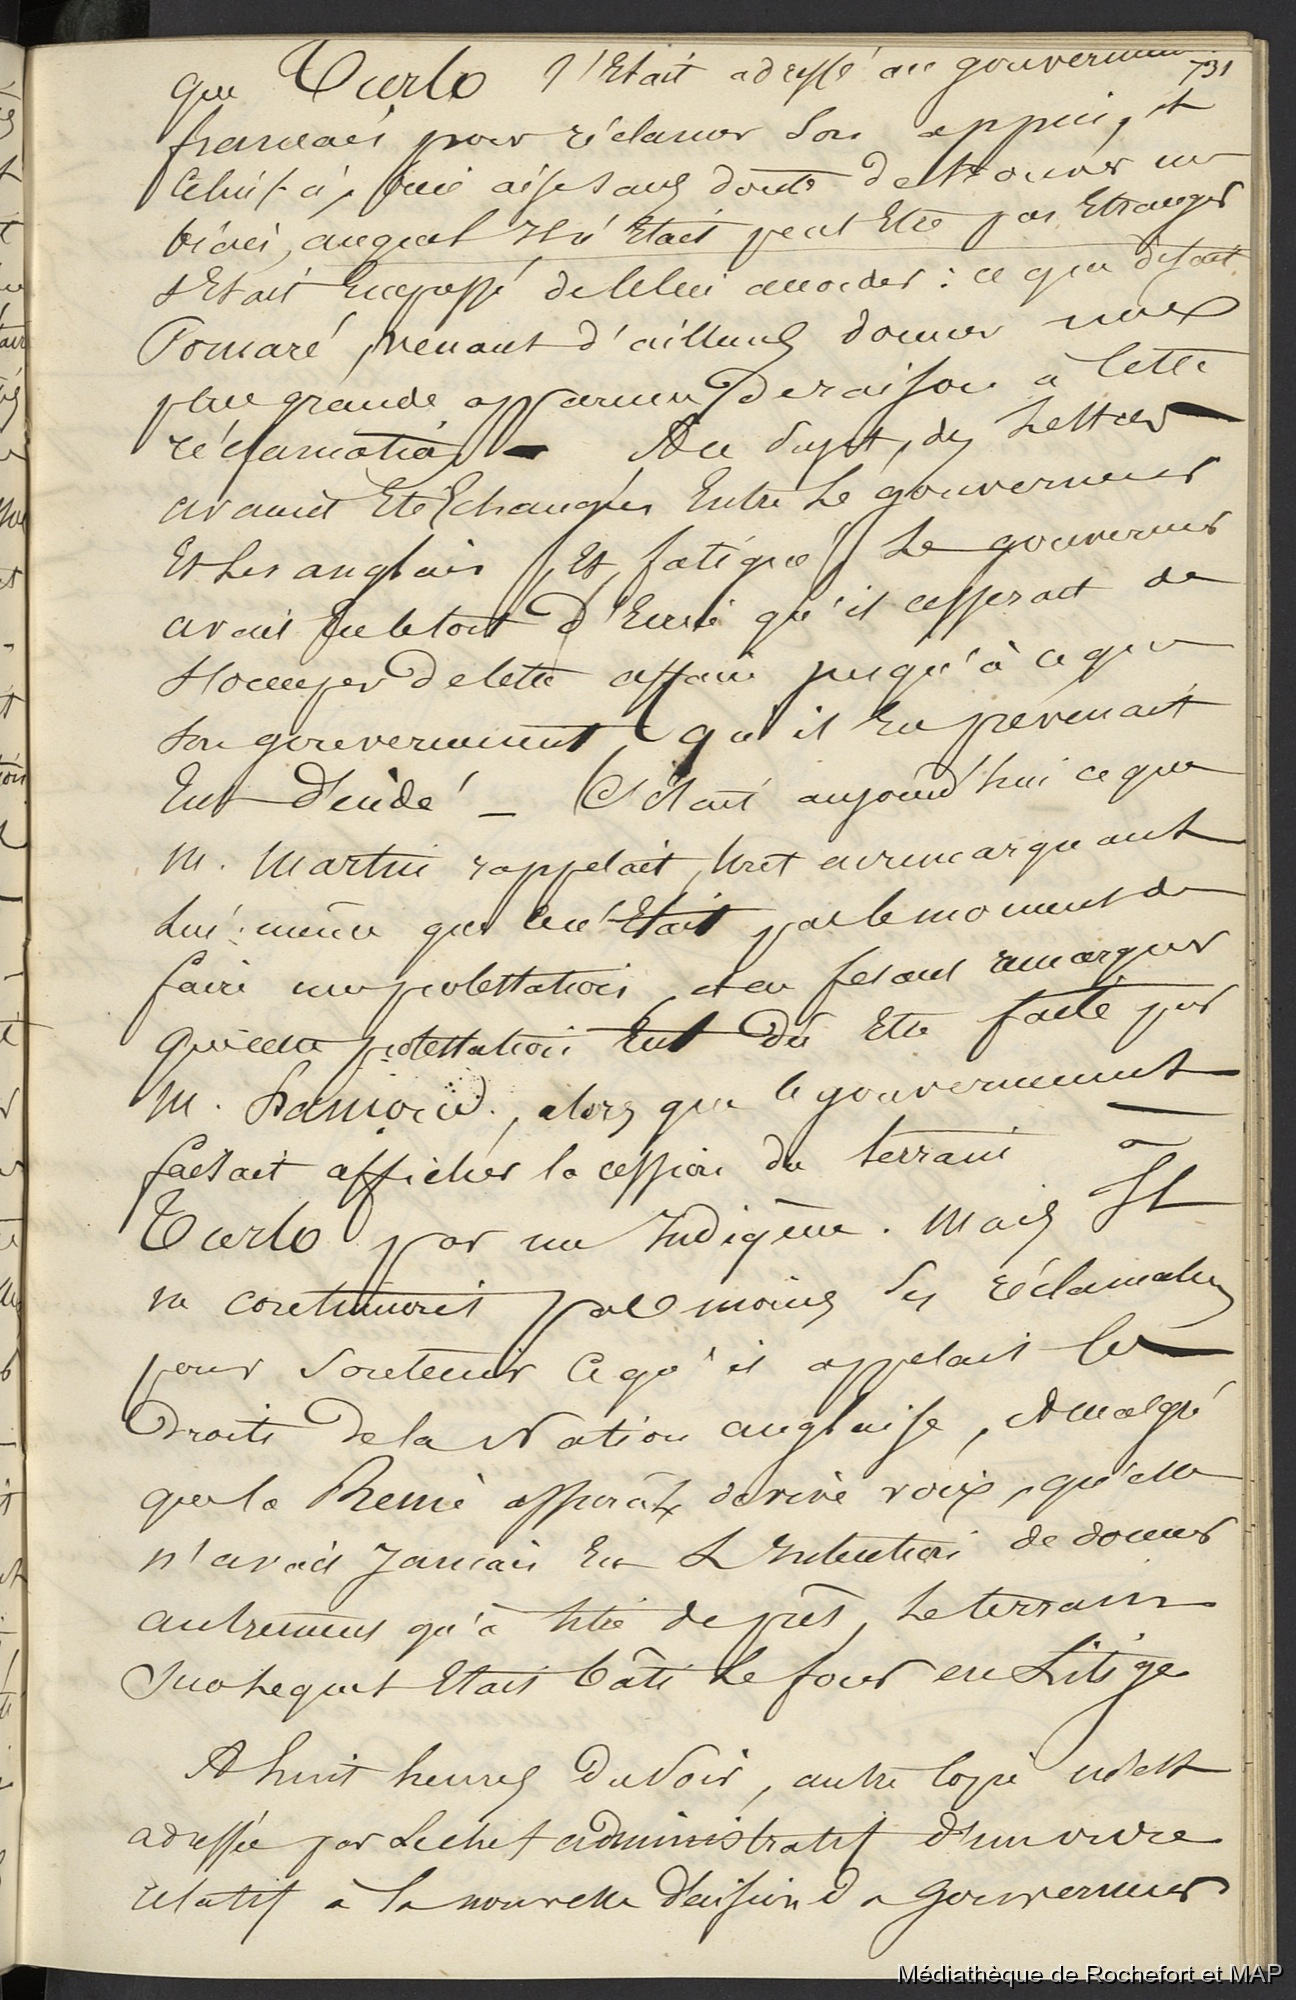 731
que Turlo s'Etait adressé au gouvernement
francais pour réclamer son appui, et
Celui-ci, bien aise sans doute de trouver un
biais, auquel il n'était peut Etre pas Etranger
s'Etait Empressé de le lui accorder : ce que disait
Pomaré, venant d'ailleurs donner une
plus grande apparence de raison à Cette
réclamation - A ce sujet, des Lettres
avaient Eté Echangées Entre Le gouverneur
Et Les anglais, Et, fatigué, Le gouverneur
avait fini d'Ecrire qu'il cesserait de
s'occuper de cette affaire jusqu'à ce que
son gouvernement, qu'il En prévenait
Eut décidé - C'était aujourd'hui ce que
M. Martin rappelait, tout en remarquant
Lui-même que ce n'Etait pas le moment de
faire une protestation, et en fesant remarquer
que cette protestation Eut dû Etre faite par
M. Hamond, alors que le gouvernement
faisait afficher la cession du terrain à
Turlo par un Indigène. Mais Il
n'en continuait pas moins ses réclamations
pour soutenir Ce qu'il appelait les
Droits de la Nation anglaise, et malgré
que la Reine assurât de vive voix, qu'elle
n'avait Jamais Eu L'Intention de donner
autrement qu'à titre de prêt, Le terrain
sur Lequel Etait bâti Le four en Litige
A huit heures du soir, autre Copie m'est
adressée par Le chef administratif d'un ordre
relatif à la nouvelle décision du Gouverneur
Médiathèque de Rochefort et MAP